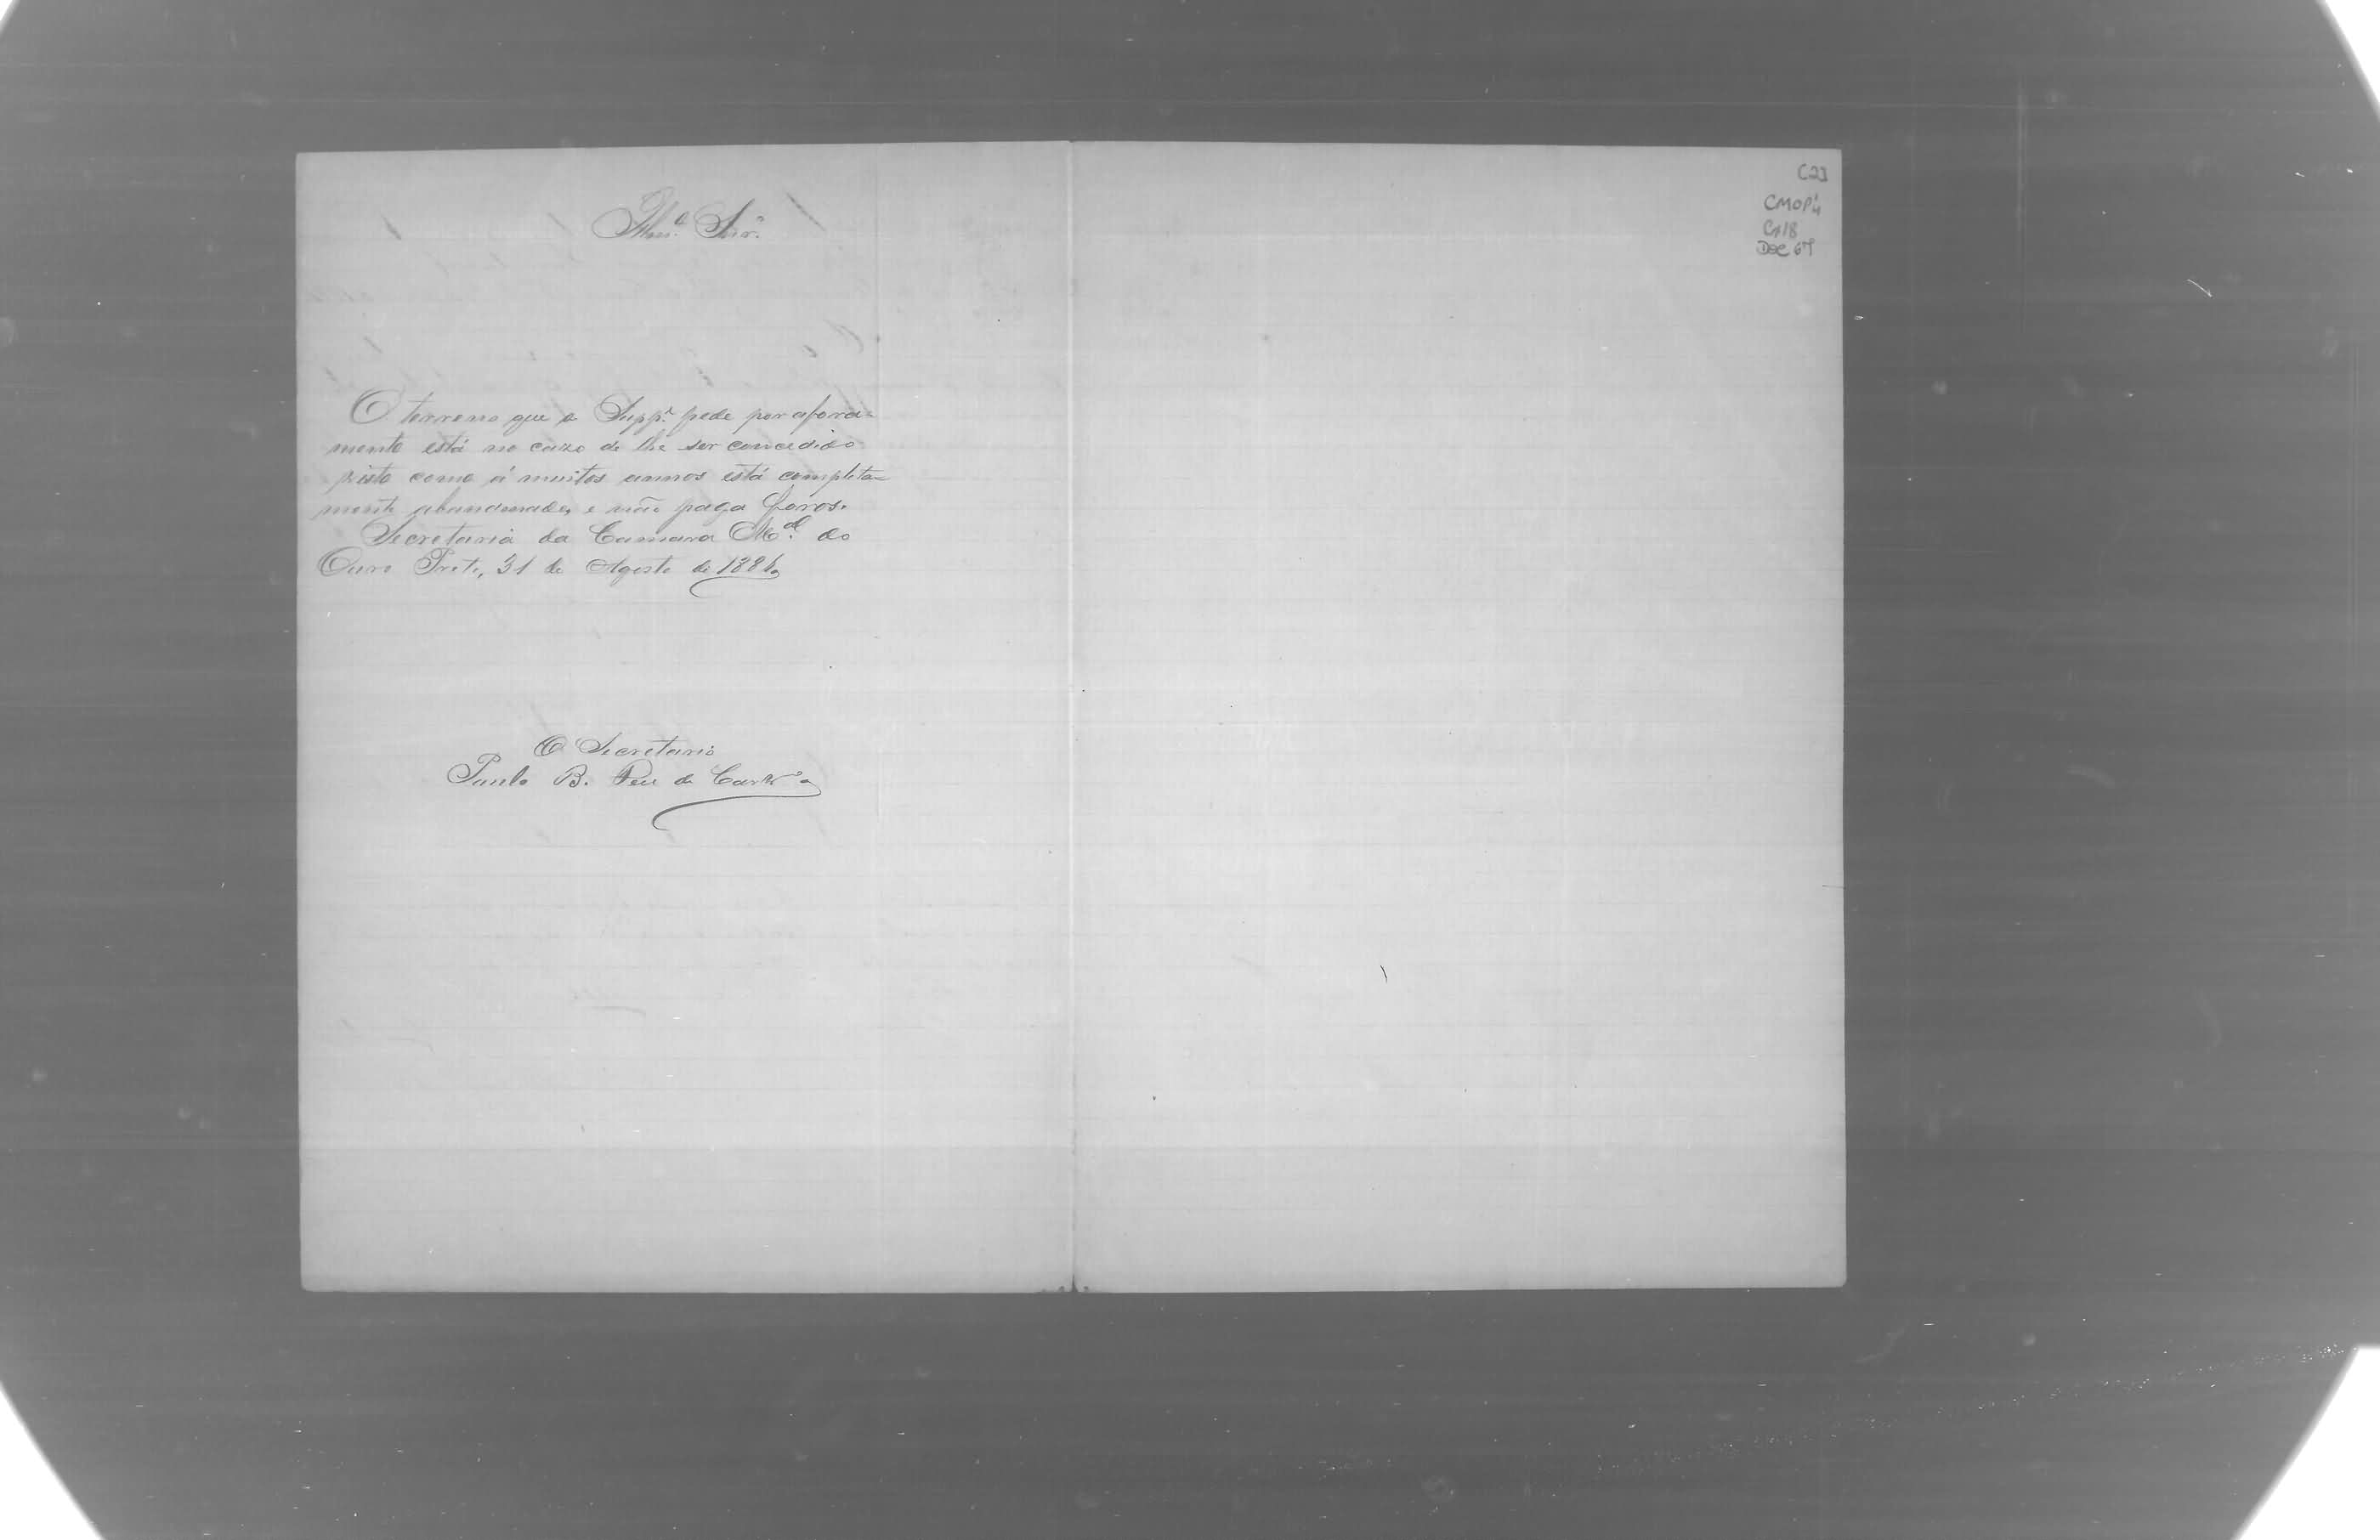 Illmº Snr.
O terreno que o Supp.e pede por afora-
mento está no cazo de lhe ser concedido
visto como á muitos annos está completa-
mente abandonado, e não paga foros.
Secretaria da Camara M.al do
Ouro Preto, 31 de Agosto de 1886
O Secretario
Paulo B. de
C23
CMOP
Cx18
Doc 67